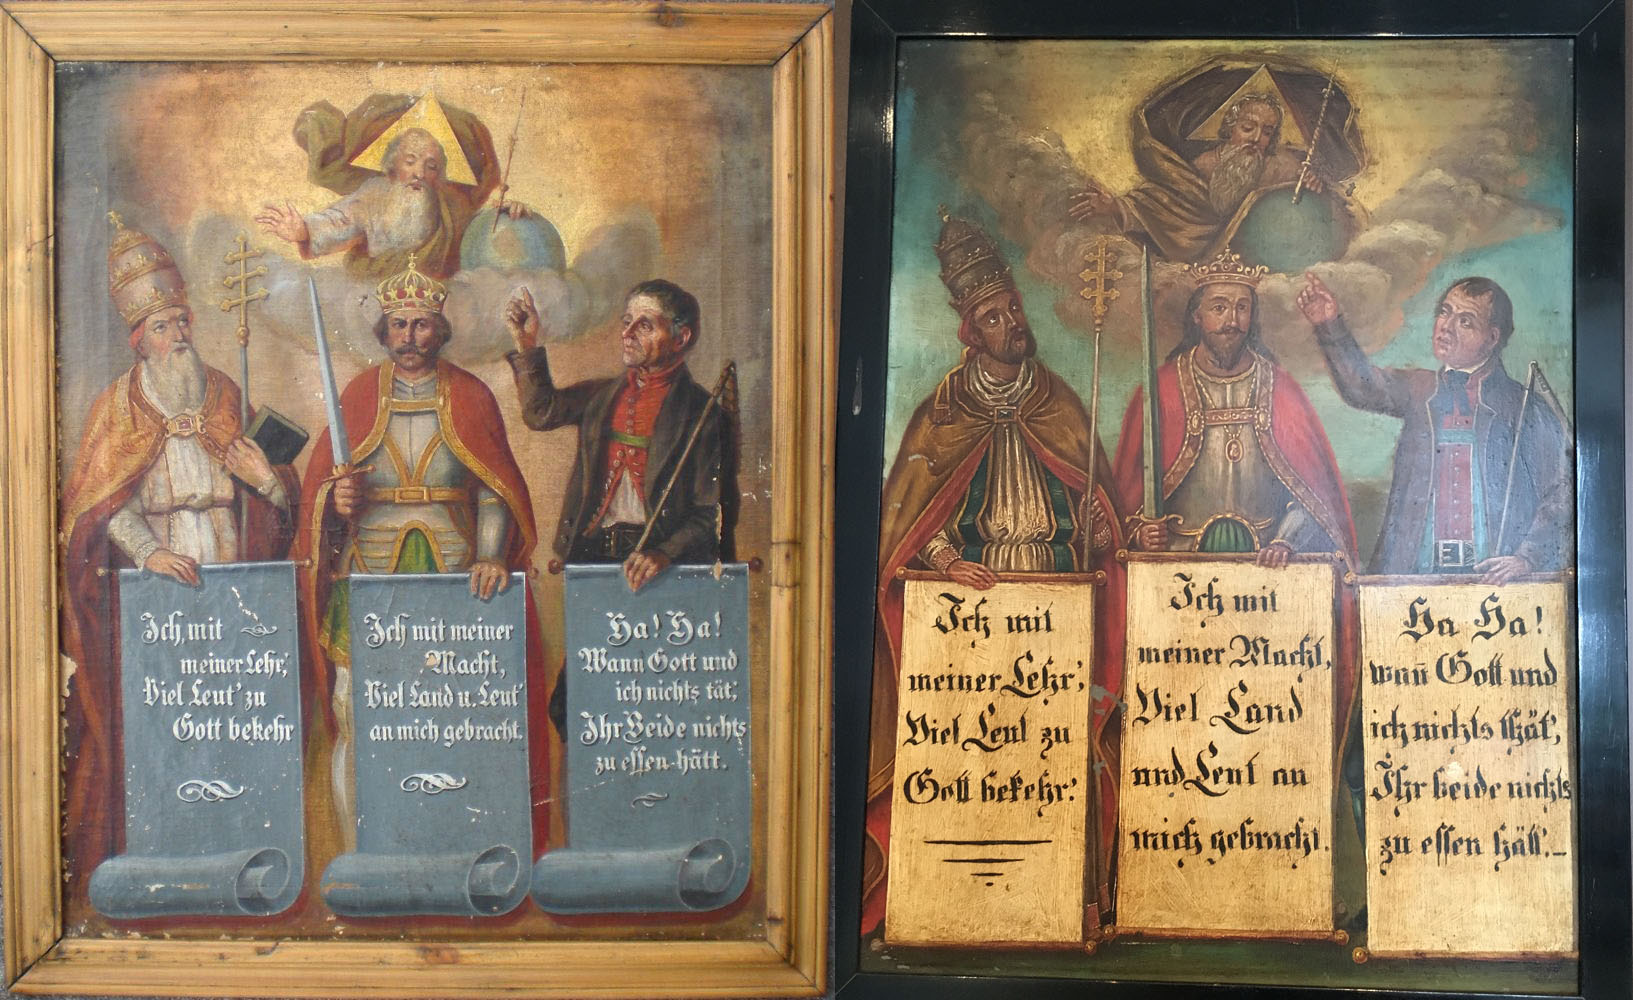 Ich mit
meiner Lehr,'
Viel Leut' zu
Gott bekehr
Ich mit meiner
Macht,
Viel Land u. Leut'
an mich gebracht.
Ha! Ha!
Wann Gott und
ich nichts tät,'
Ihr Beide nichts
zu essen hätt.
Ich mit
meiner Lehr,'
Viel Leut zu
Gott bekehr!
Ich mit
meiner Macht,
Viel Land
und Leut an
mich gebracht.
Ha Ha!
wañ Gott und
ich nichts thät,'
Ihr beide nichts
zu essen hätt'.